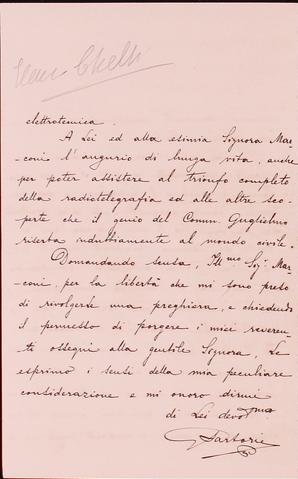 elettrotecnica.
A Lei ed alla esimia Signora Mar-
-coni l'augurio di lunga vita, anche
per poter assistere al trionfo completo
della radiotelegrafia ed alle altre sco-
perte che il genio del Comm. Guglielmo
riserba indubbiamente al mondo civile.
Domandando scusa, Ill.mo Sig. Mar-
coni, per la libertà che mi sono preso
di rivolgerle una preghiera, e chiedendo
il permesso di porgere i miei reveren-
ti ossequi alla gentile Signora, Le
esprimo i sensi della mia peculiare
considerazione e mi onoro dirmi
di Lei devot.mo
Sartori